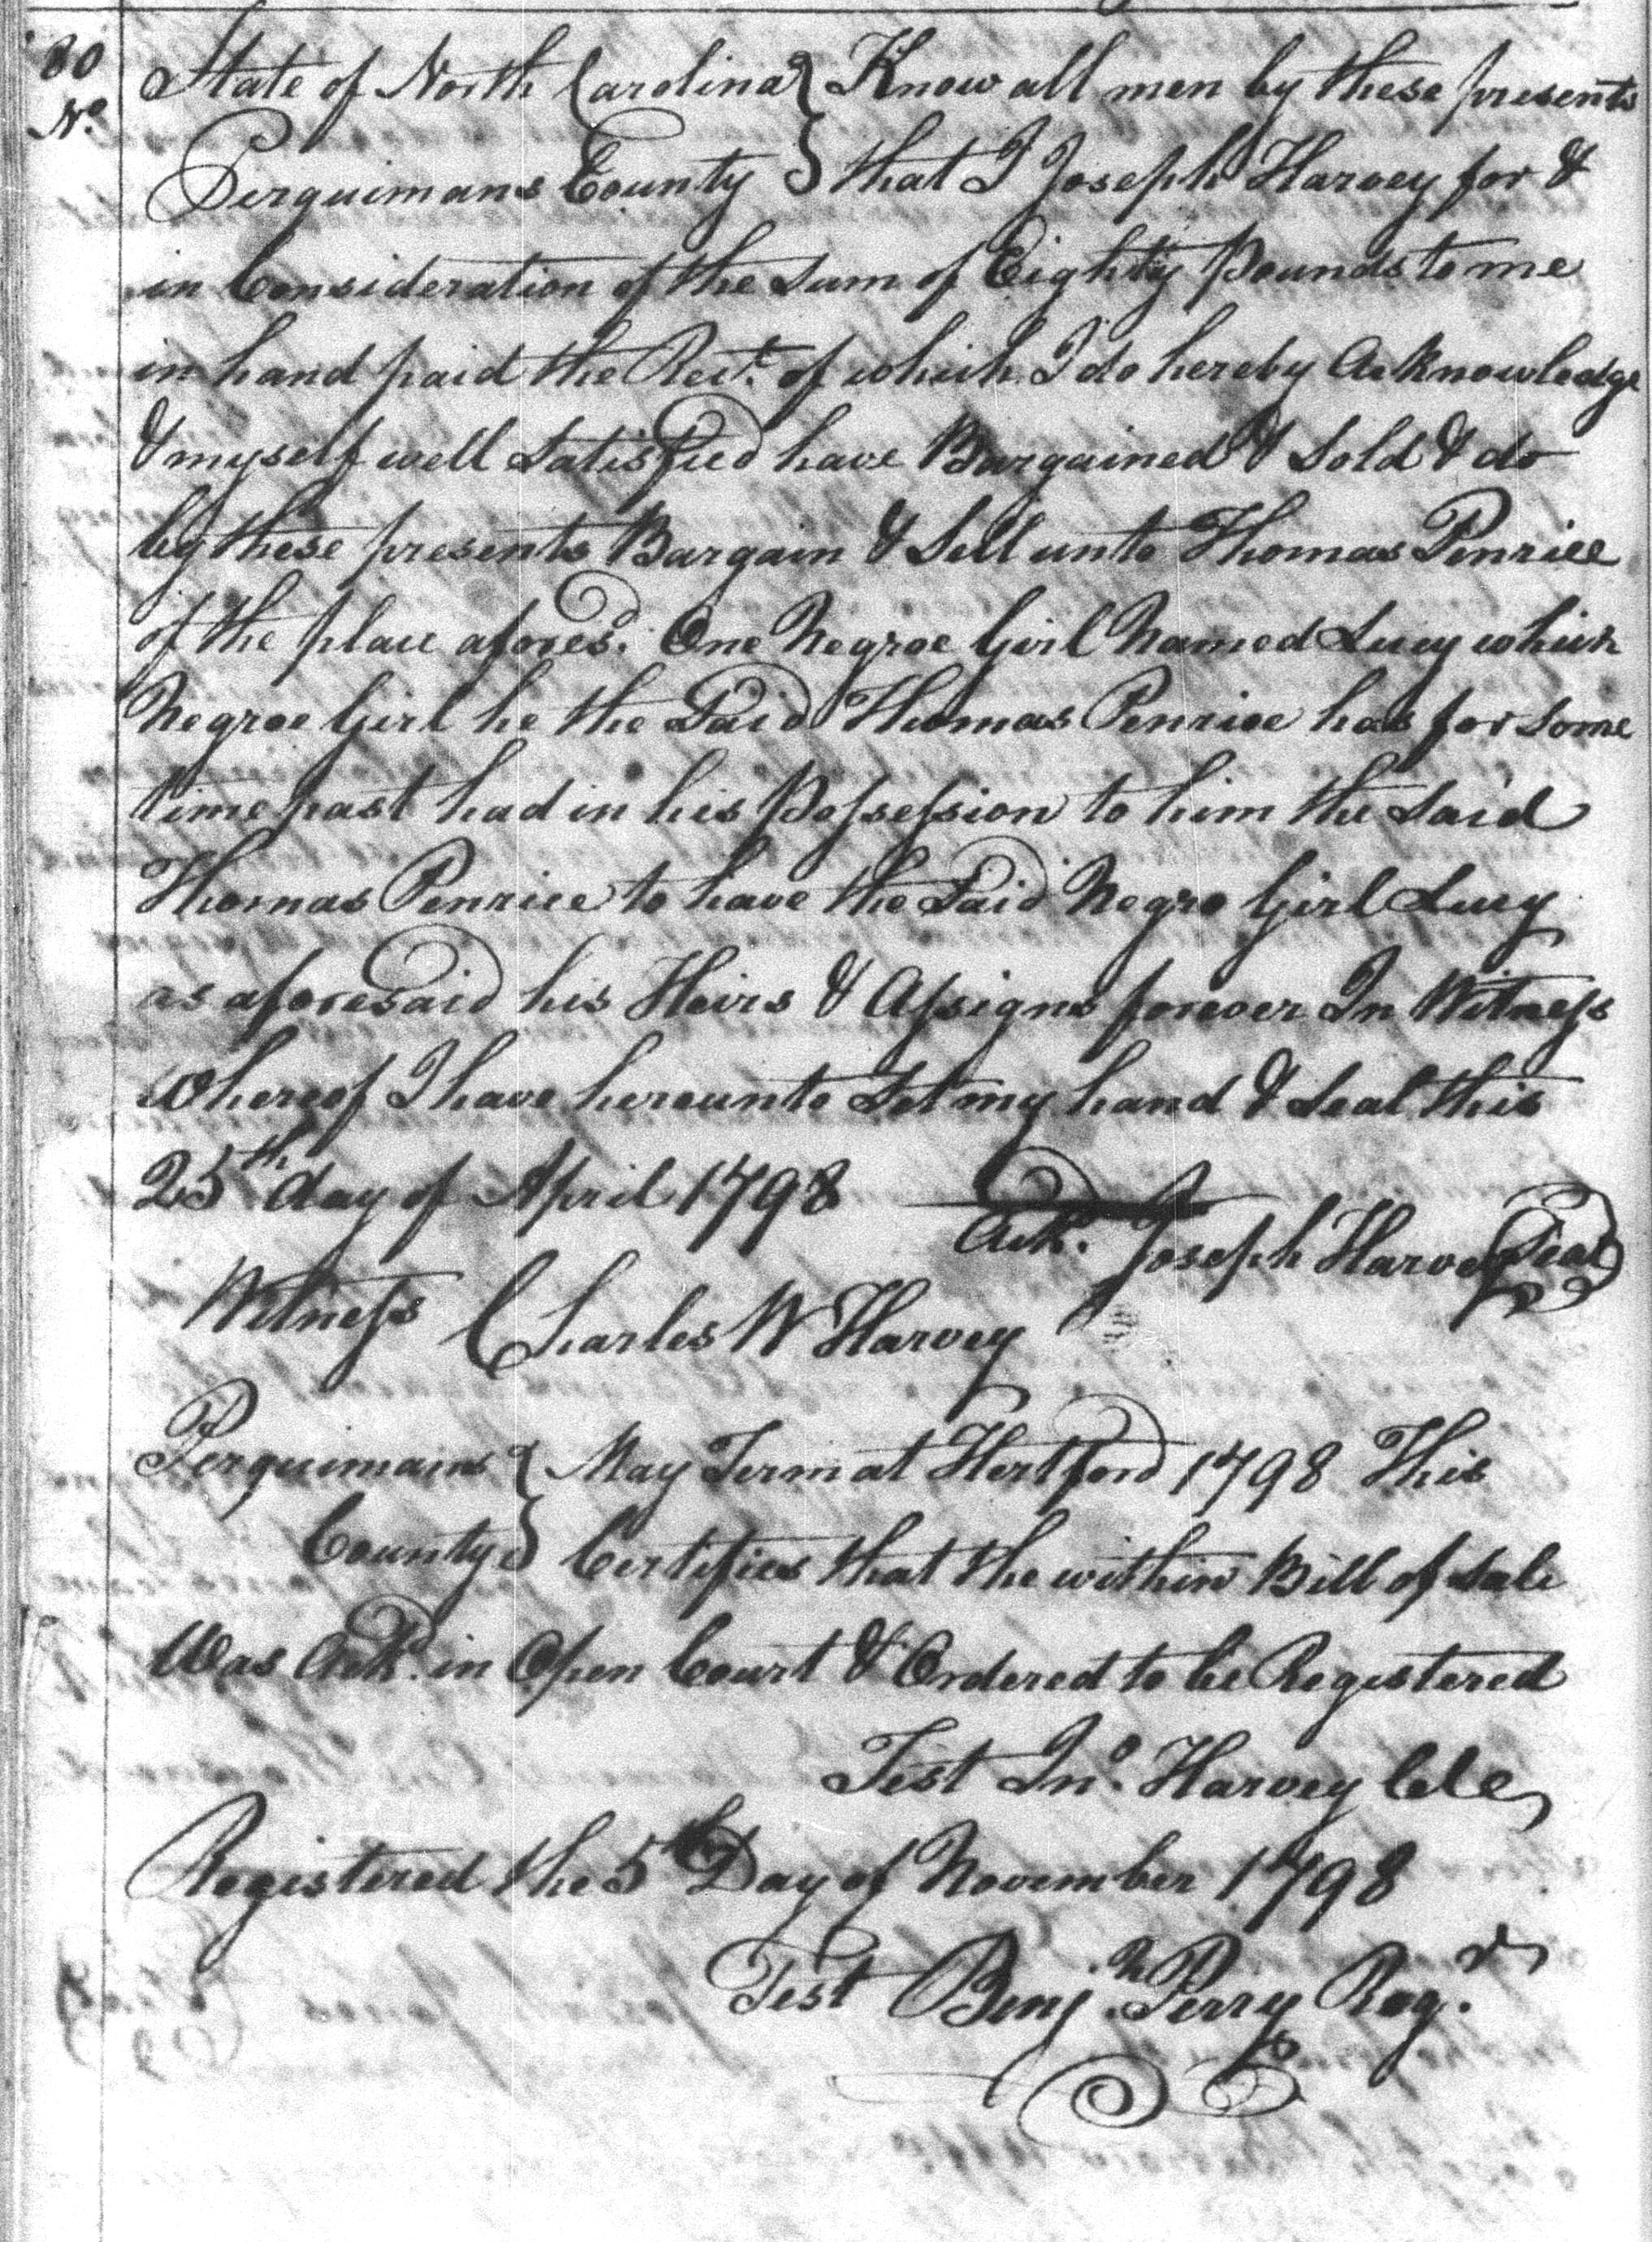 80
No.
State of North Carolina } Know all men by these presents
Perquimans County } that I Joseph Harvey for &
in Consideration of the Sum of Eighty Pounds to me
in hand paid the Rect. of which I do hereby Acknowledge
& myself well Satisfied have Bargained & Sold & do
by these presents Bargain & Sell unto Thomas Penrice
of the place afores.d One Negroe Girl Named Lucy which
Negroe Girl he the Said Thomas Penrice has for Some
time past had in his Possession to him the Said
Thomas Penrice to have the Said Negro Girl Lucy
as aforesaid his Heirs & Assigns forever In Witness
Whereof I have hereunto Set my hand & Seal this
25th day of April 1798
Ack.d Joseph Harvey Seal
Witness Charles W Harvey
Perquimans } May Term at Hertford 1798 This
County } Certifies that the within Bill of Sale
Was Ack.d in Open Court & Ordered to be Registered
Test Jno. Harvey Cle
Registered the 5th Day of November 1798
Test Benj.n Perry Reg.r